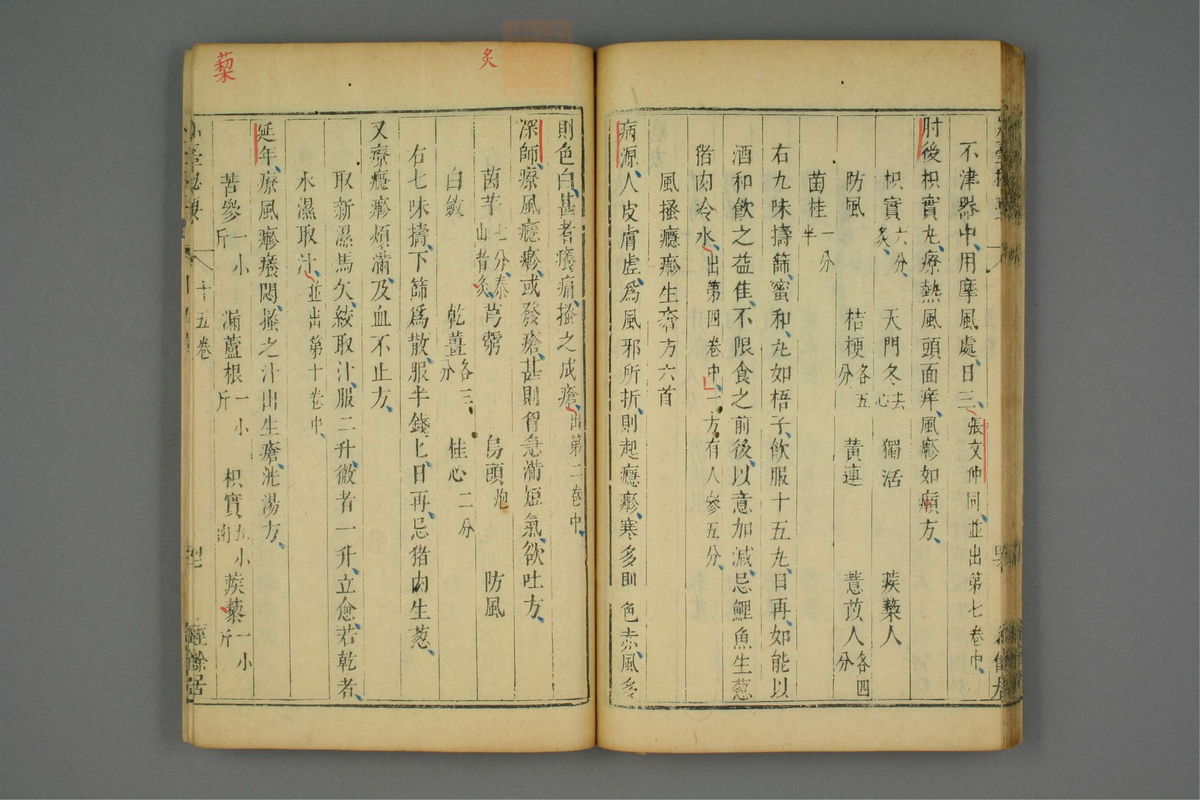 不津器中用摩風處日三張文仲同並出第七卷中
肘後枳實丸療熱風頭面痒風瘮如癩方
枳實六分炙 天門冬去心 獨活 蒺䔧人
防風 桔梗各五分 黃連 薏苡人各四分
菌桂一分半
右九味擣篩蜜和丸如梧子飲服十五丸日再如能以
酒和飲之益佳不限食之前後以意加減忌鯉魚生葱
猪肉冷水出第四卷中一方有人參五分
風搔癮瘮生瘡方六首
病源人皮膚虛爲風邪所折則起癮瘮寒多則色赤風多
則色白甚者癢痛搔之成瘡出第二卷中
深師療風癮瘮或發瘡甚則胷急滿短氣欲吐方
茵芋七分泰山者炙 芎藭 烏頭炮 防風
白蘞 乾薑各三分 桂心二分
右七味擣下篩爲散服半錢匕日再忌猪肉生葱
又療癮瘮煩滿及血不止方
取新濕馬矢絞取汁服二升微者一升立愈若乾者
水濕取汁並出第十卷中
延年療風瘮癢悶搔之汁出生瘡洗湯方
苦參一小斤 漏蘆根一小斤 枳實五小兩 蒺藜一小斤
十五卷
經餘居
炙
䔧